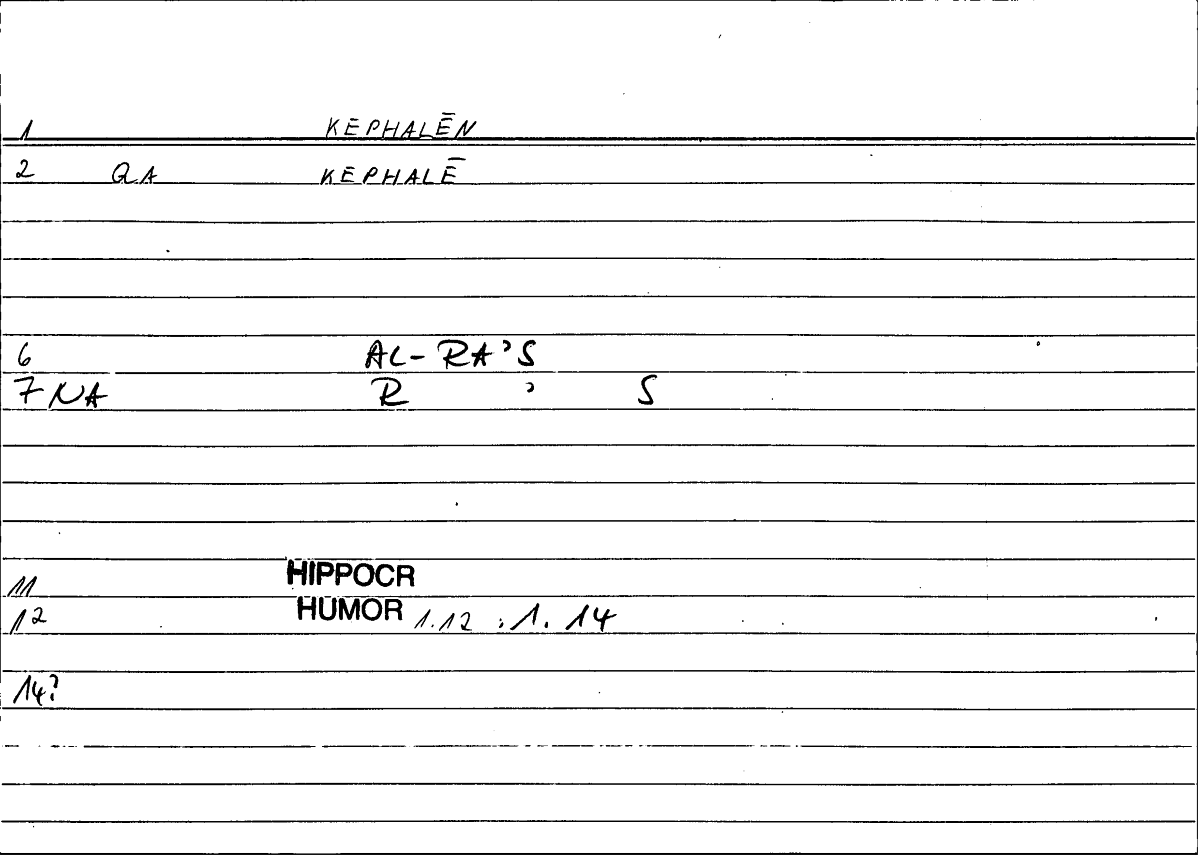 1 KEPHALĒN
2 QA KEPHALĒ
6 AL-RA'S
7 NA R ' S
11 HIPPOCR
12 HUMOR 1.12 : 1. 14
14?